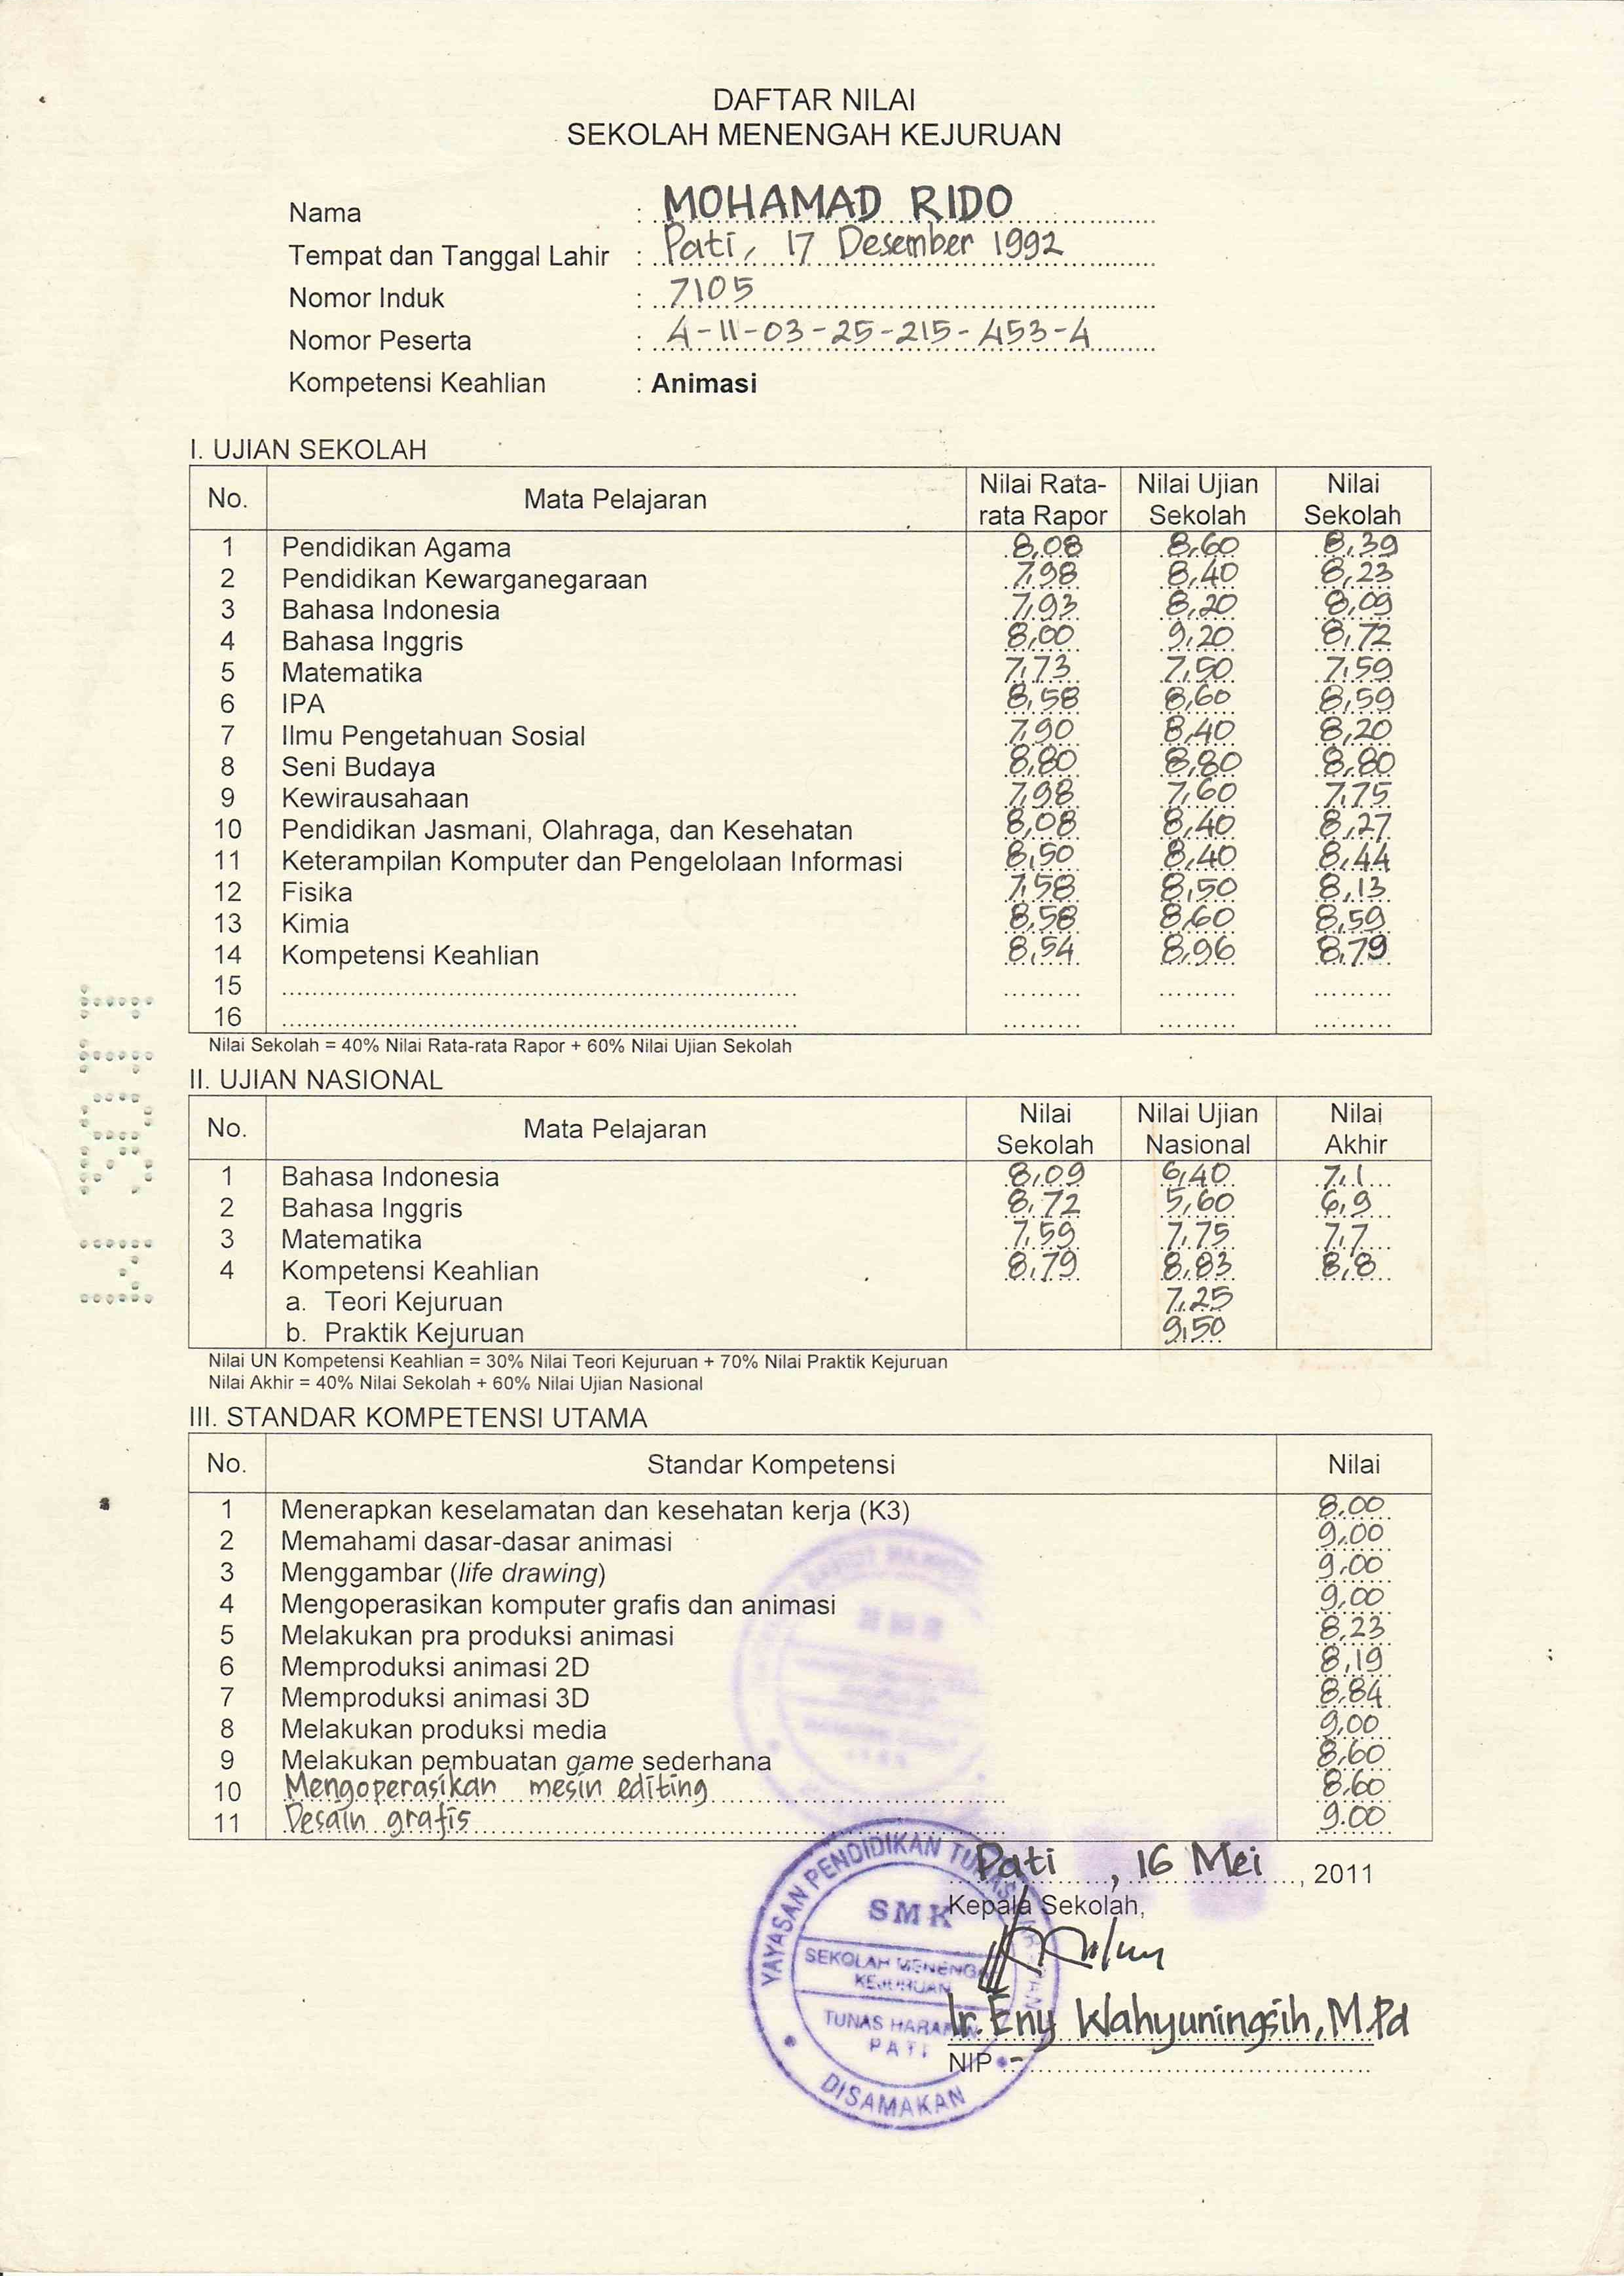 DAFTAR NILAI
SEKOLAH MENENGAH KEJURUAN
Nama : MOHAMAD RIDO
Tempat dan Tanggal Lahir : Pati, 17 Desember 1992
Nomor Induk : 7105
Nomor Peserta : 4-11-03-25-215-453-4
Kompetensi Keahlian : Animasi
I. UJIAN SEKOLAH
No. Mata Pelajaran Nilai Rata-rata Rapor Nilai Ujian Sekolah Nilai Sekolah
1 Pendidikan Agama 8,08 8,60 8,39
2 Pendidikan Kewarganegaraan 7,98 8,40 8,23
3 Bahasa Indonesia 7,93 8,20 8,09
4 Bahasa Inggris 8,00 9,20 8,72
5 Matematika 7,73 7,50 7,59
6 IPA 8,58 8,60 8,59
7 Ilmu Pengetahuan Sosial 7,90 8,40 8,20
8 Seni Budaya 8,80 8,80 8,80
9 Kewirausahaan 7,98 7,60 7,75
10 Pendidikan Jasmani, Olahraga, dan Kesehatan 8,08 8,40 8,27
11 Keterampilan Komputer dan Pengelolaan Informasi 8,50 8,40 8,44
12 Fisika 7,58 8,50 8,13
13 Kimia 8,58 8,60 8,59
14 Kompetensi Keahlian 8,54 8,96 8,79
15
16
Nilai Sekolah = 40% Nilai Rata-rata Rapor + 60% Nilai Ujian Sekolah
II. UJIAN NASIONAL
No. Mata Pelajaran Nilai Sekolah Nilai Ujian Nasional Nilai Akhir
1 Bahasa Indonesia 8,09 6,40 7,1
2 Bahasa Inggris 8,72 5,60 6,9
3 Matematika 7,59 7,75 7,7
4 Kompetensi Keahlian 8,79 8,83 8,8
a. Teori Kejuruan 7,25
b. Praktik Kejuruan 9,50
Nilai UN Kompetensi Keahlian = 30% Nilai Teori Kejuruan + 70% Nilai Praktik Kejuruan
Nilai Akhir = 40% Nilai Sekolah + 60% Nilai Ujian Nasional
III. STANDAR KOMPETENSI UTAMA
No. Standar Kompetensi Nilai
1 Menerapkan keselamatan dan kesehatan kerja (K3) 8,00
2 Memahami dasar-dasar animasi 9,00
3 Menggambar (life drawing) 9,00
4 Mengoperasikan komputer grafis dan animasi 9,00
5 Melakukan pra produksi animasi 8,23
6 Memproduksi animasi 2D 8,19
7 Memproduksi animasi 3D 8,84
8 Melakukan produksi media 9,00
9 Melakukan pembuatan game sederhana 8,60
10 Mengoperasikan mesin editing 8,60
11 Desain grafis 9.00
Pati , 16 Mei , 2011
Kepala Sekolah,
Ir. Eny Wahyuningsih, M.Pd
NIP : -
YAYASAN PENDIDIKAN TUNAS
SMK
SEKOLAH MENENGAH
KEJURUAN
TUNAS HARAPAN
PATI
DISAMAKAN